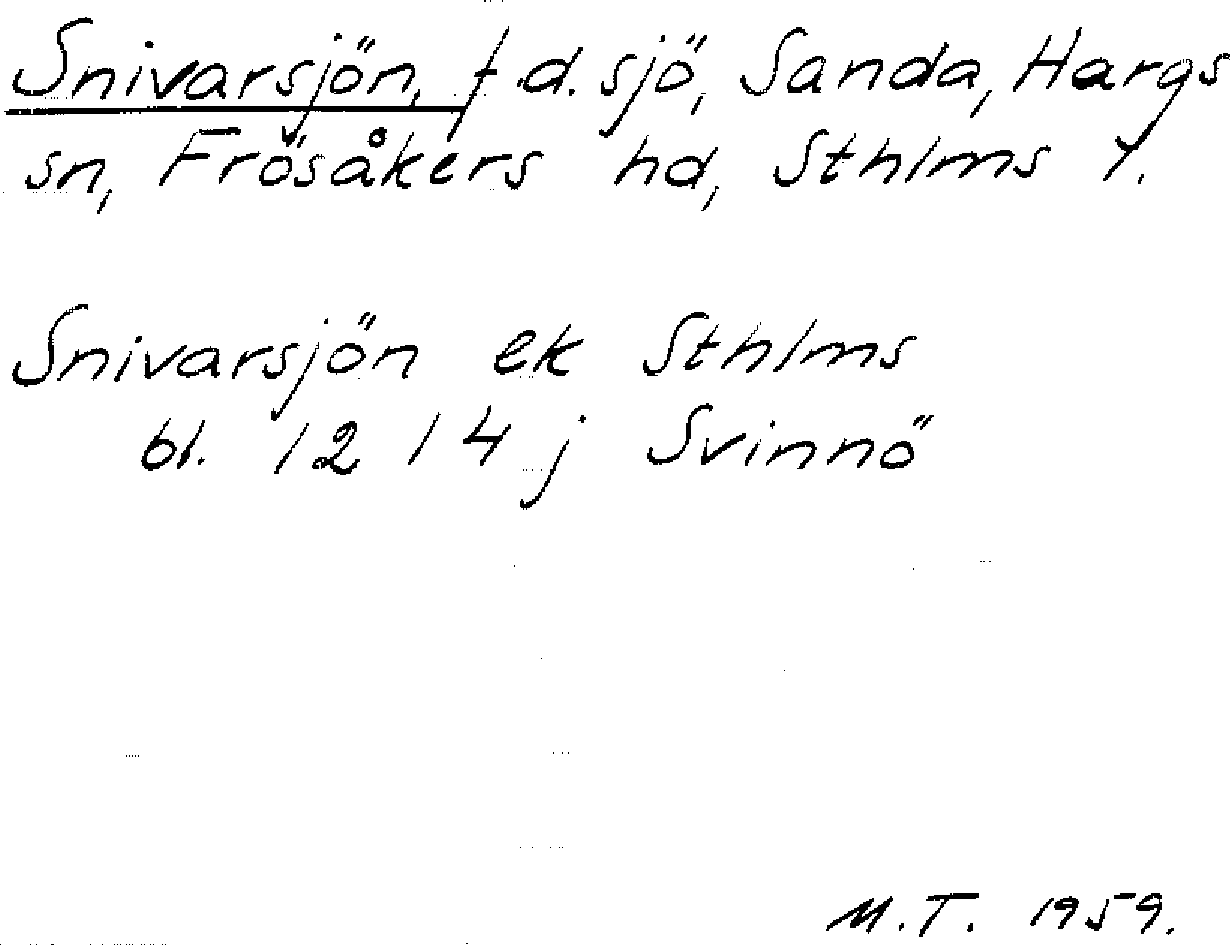 Snivarsjön, f.d. sjö, Sanda, Hargs
sn, Frösåkers hd, Sthlms l.
Snivarsjön ek Sthlms
bl. 12 14 j Svinnö
M.T. 1959.